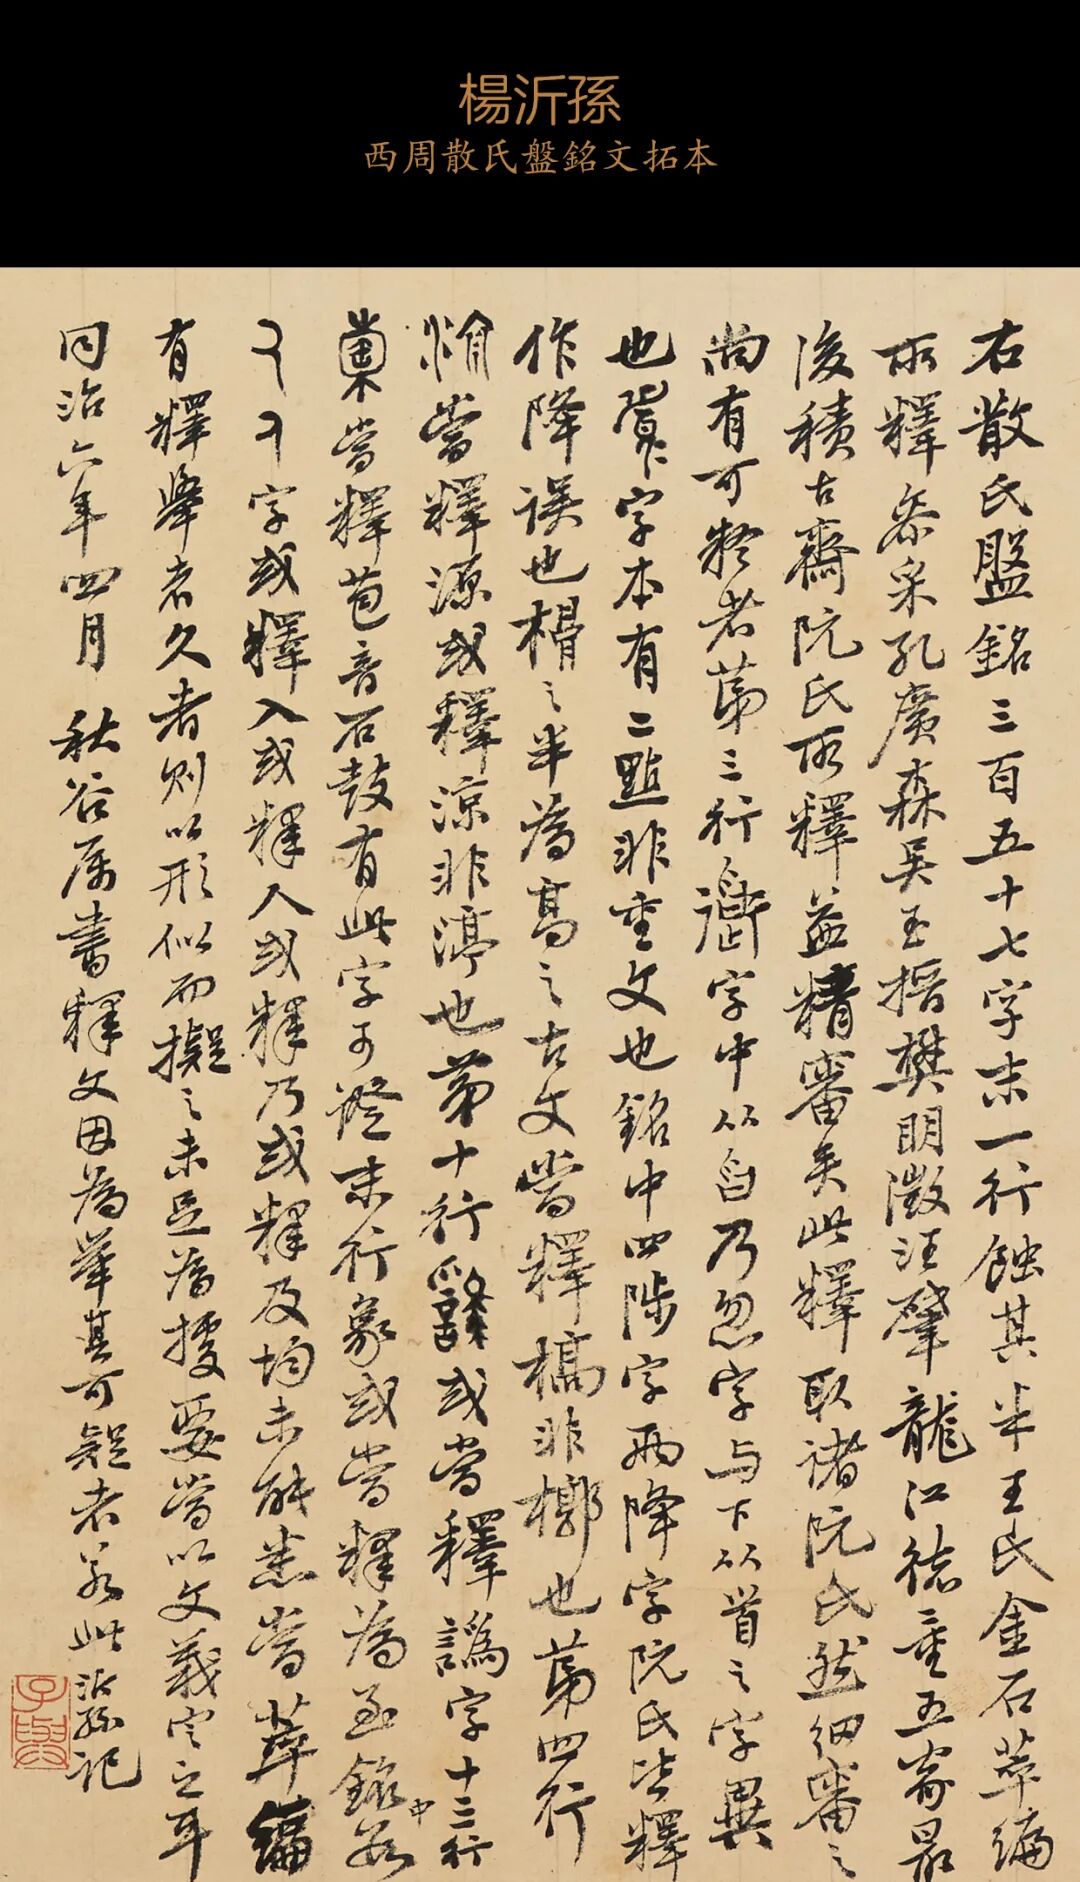 楊沂孫
西周散氏盤銘文拓本
右散氏盤銘三百五十七字末一行蝕其半王氏金石萃編
所釋參采孔廣森吳玉搢樊明澂汪肇龍江德量五家最
後積古齋阮氏所釋益精審矣此釋取諸阮氏然細審之
尚有可疑者第三行字中从自乃忽字与下从首之字異
也字本有二點非重文也銘中四陟字兩降字阮氏皆釋
作降誤也榾之半為高之古文當釋槁非槨也第四行
當釋源或釋涼非渟也第十行或當釋譌字十三行
當釋苞音石鼓有此字可證末行象或當釋為銘中
字或釋入或釋人或釋乃或釋及均未能悉當萃編
有釋學者久者則以形似而擬之未足為據要當以文義定之耳
同治六年四月 秋谷属書釋文因為舉其可疑者若此沂孫記
子與